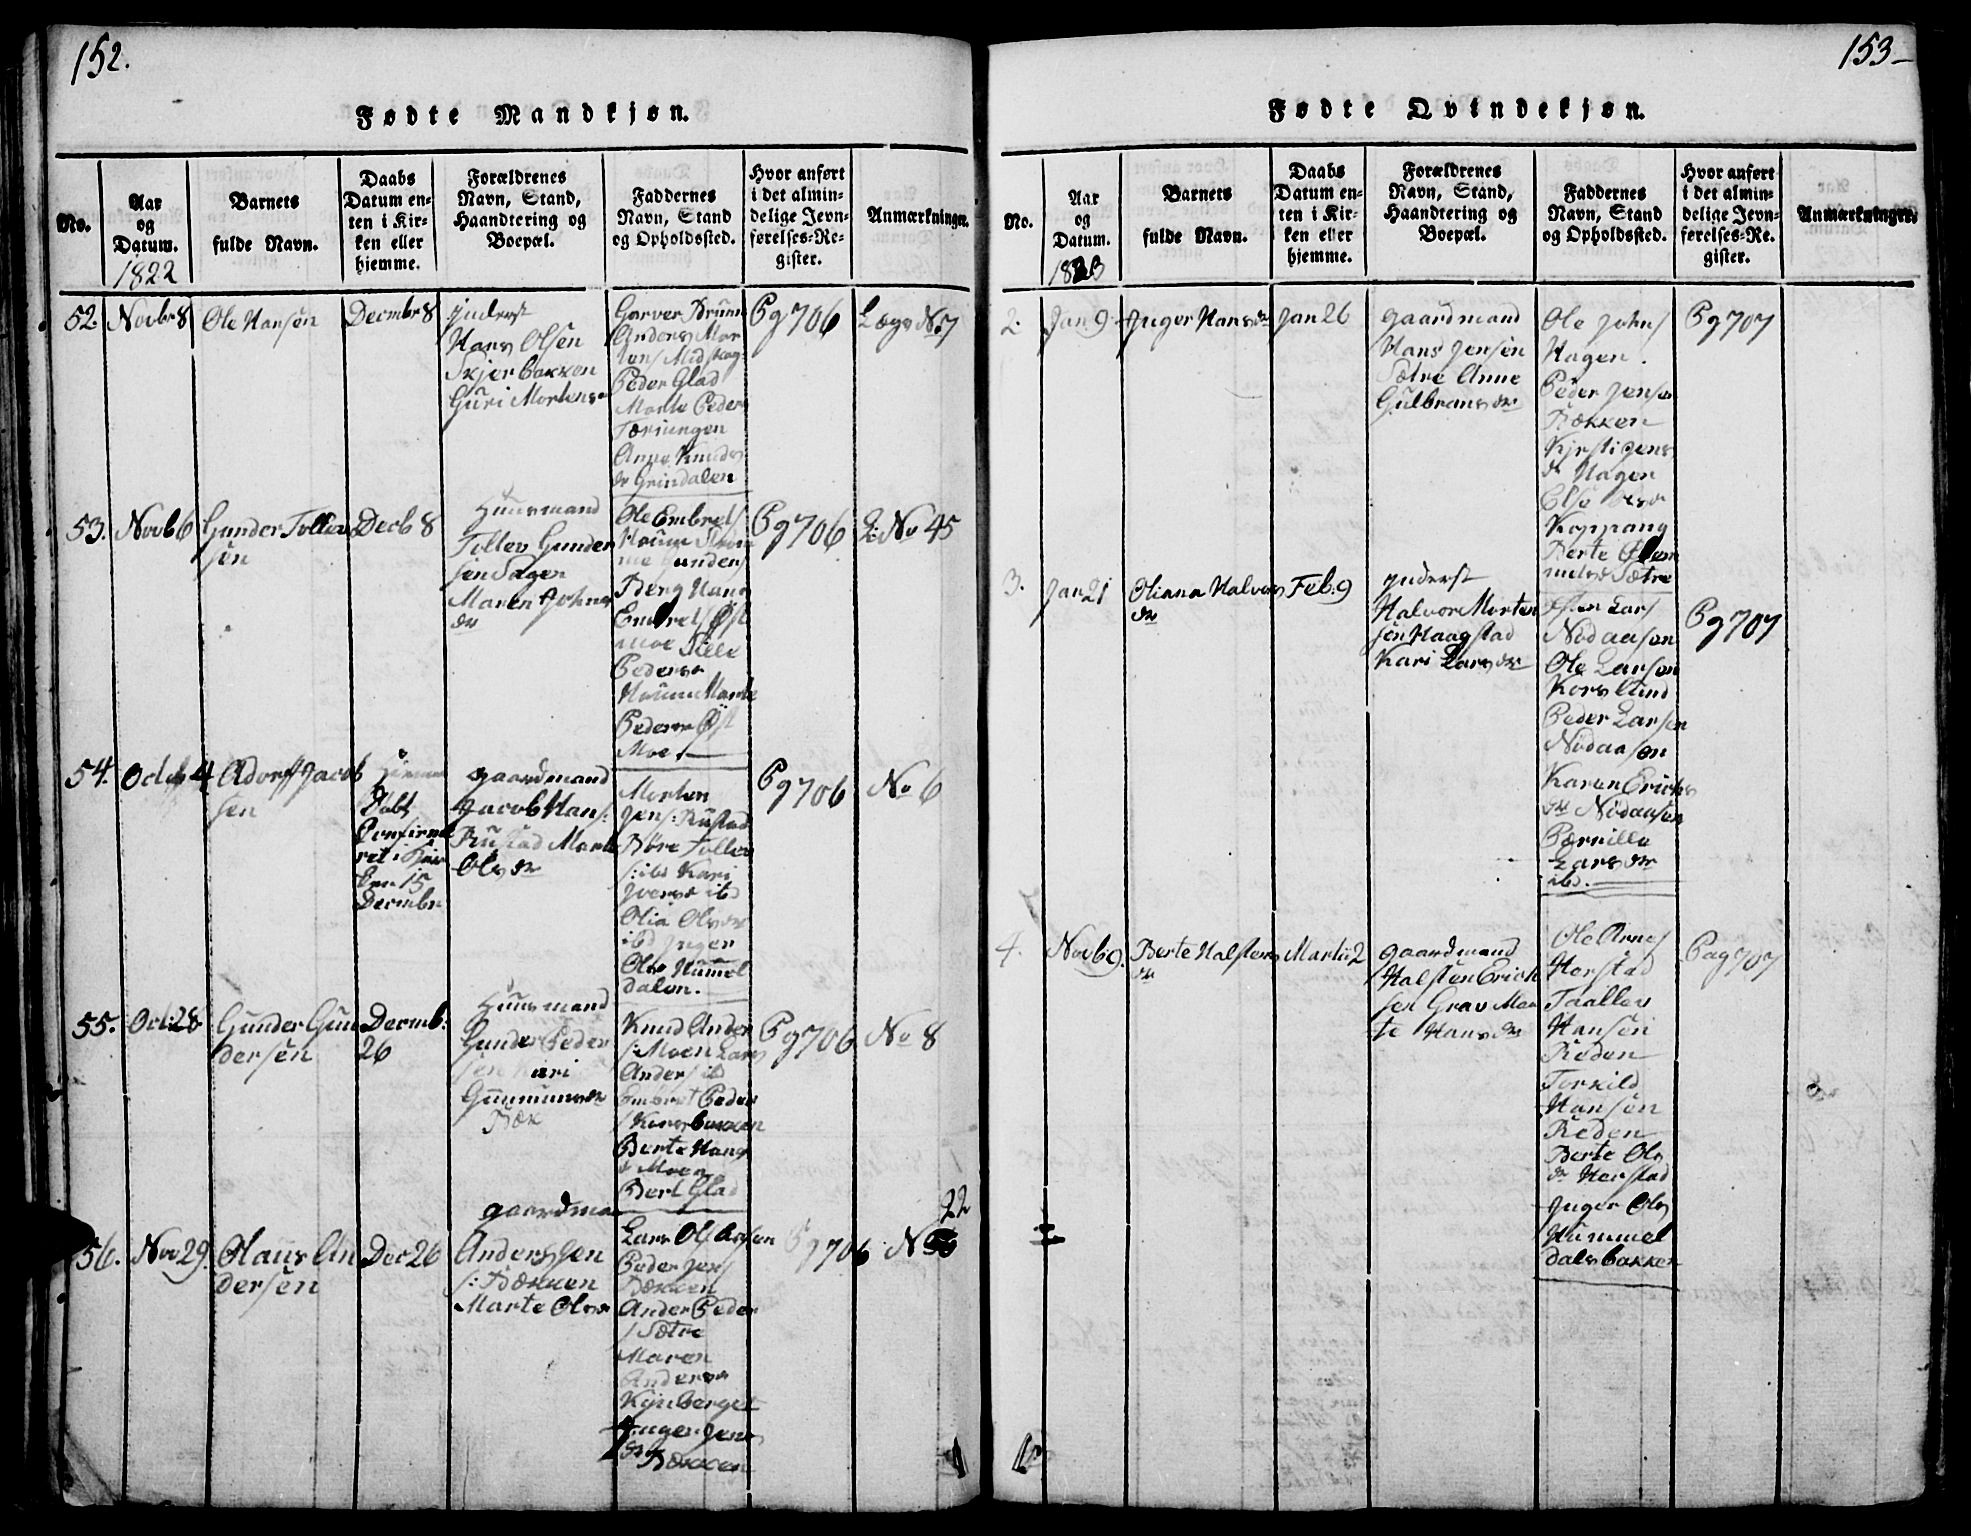 152.
Fødte Mandkjøn.
No.
Aar
og
Datum.
1822
Barnets
fulde Navn.
Daabs
Datum en-
ten i Kir-
ken eller
hjemme.
Forældrenes
Navn, Stand,
Haandtering og
Boepæl.
Faddernes
Navn, Stand
og Opholdssted.
Hvor anført
i det almin-
delige Jevn-
førelses-Re-
gister.
Anmærkninger.
52.
Novbr 8
Ole Hansen
Decmbr 8
Inderst
Hans Olsen
Skjerbakken
Guri Mortens
Garver Bruun
Anders Mor
tens Midskog
Peder Glad
Marte Peders
Tærningen
Anne Knuds
dr Grindalen
Pg 706
Lægs No 7
53.
Novb 6
Gunder Tollev
sen
Decb 8
Huusmand
Tollev Gunder
sen Sagen
Maren Johns
dr
Ole Embrets
Berg Hans
Embrets Øst
moe
Peders
Peders Øst
Moe.
Pg 706
L: No 45
54.
Octb 4
Adorff Jacob
sen
Døbt
Confirme
ret i Kir
ken 15
Decmbr
gaardmand
Jacob Hans:
Rustad Marte
Ols dr
Morten
Jens: Rustad
Tollev
s: ibd Kari
Ivers ibd
Olia Ols dr
ibd Inger
Ols Hummel
dalen.
Pg 706
No 6
55.
Oct: 28
Gunder Gun
dersen
Decmb:
26
Huusmand
Gunder Peder
sen Kari
Gunmunds dr
Bæk
Knud Ander
s: Moen Lars
Anders ib
Embret Peder
s Kirsbakken
Berte Hans
d Moen
Bert Glad
Pg 706
No 8
56.
Nov 29.
Olaus An
dersen
Dec 26
gaardman
Anders Jen
s: Bækken
Marte Ols
Lars Ols
Peder Jens
Bækken
Ander Peder
s Sætre
Maren
Anders
Kynberget
Inger Jens
dr Bækken
Pg 706
22
No
153
Fødte Qvindekjøn.
No.
Aar
og
Datum.
1823
Barnets
fulde Navn.
Daabs
Datum en-
ten i Kir-
ken eller
hjemme.
Forældrenes
Navn, Stand,
Haandtering og
Boepæl.
Faddernes
Navn, Stand
og Opholdssted.
Hvor anført
i det almin-
delige Jevn-
førelses-Re-
gister.
Anmærkninger.
2.
Jan 9
Inger Hans dr
Jan 26
gaardmand
Hans Jensen
Sætre Anne
Gulbrans dr
Ole Johns
Hagen.
Peder Jensen
Bækken
Kjersti Jens
dr Hagen
Else Ols
Koppang
Berte
Sætre
Pg 707
3.
Jan 21
Oliana Halvors
dr
Feb: 9
Inderst
Halvor Morten
sen Haagstad
Kari Lars dr
Lars
Nødaasen
Ole Larsen
Korslund
Peder Larsen
Nødaasen
Karen Ericks
dr Nødaasen
Pærnille
Lars dr
ibd.
Pg 707
4.
Novb 9.
Berte Halstens
dr
Martii 2
gaardmand
Halsten Erick
sen Grav Mar
te Hans dr
Ole Arnes
Herstad
Taallev
Hansen
Reden
Torkild
Hansen
Reden
Berte Ols
dr Herstad
Inger Ols
Hummel
dalsbakken
Pag 707